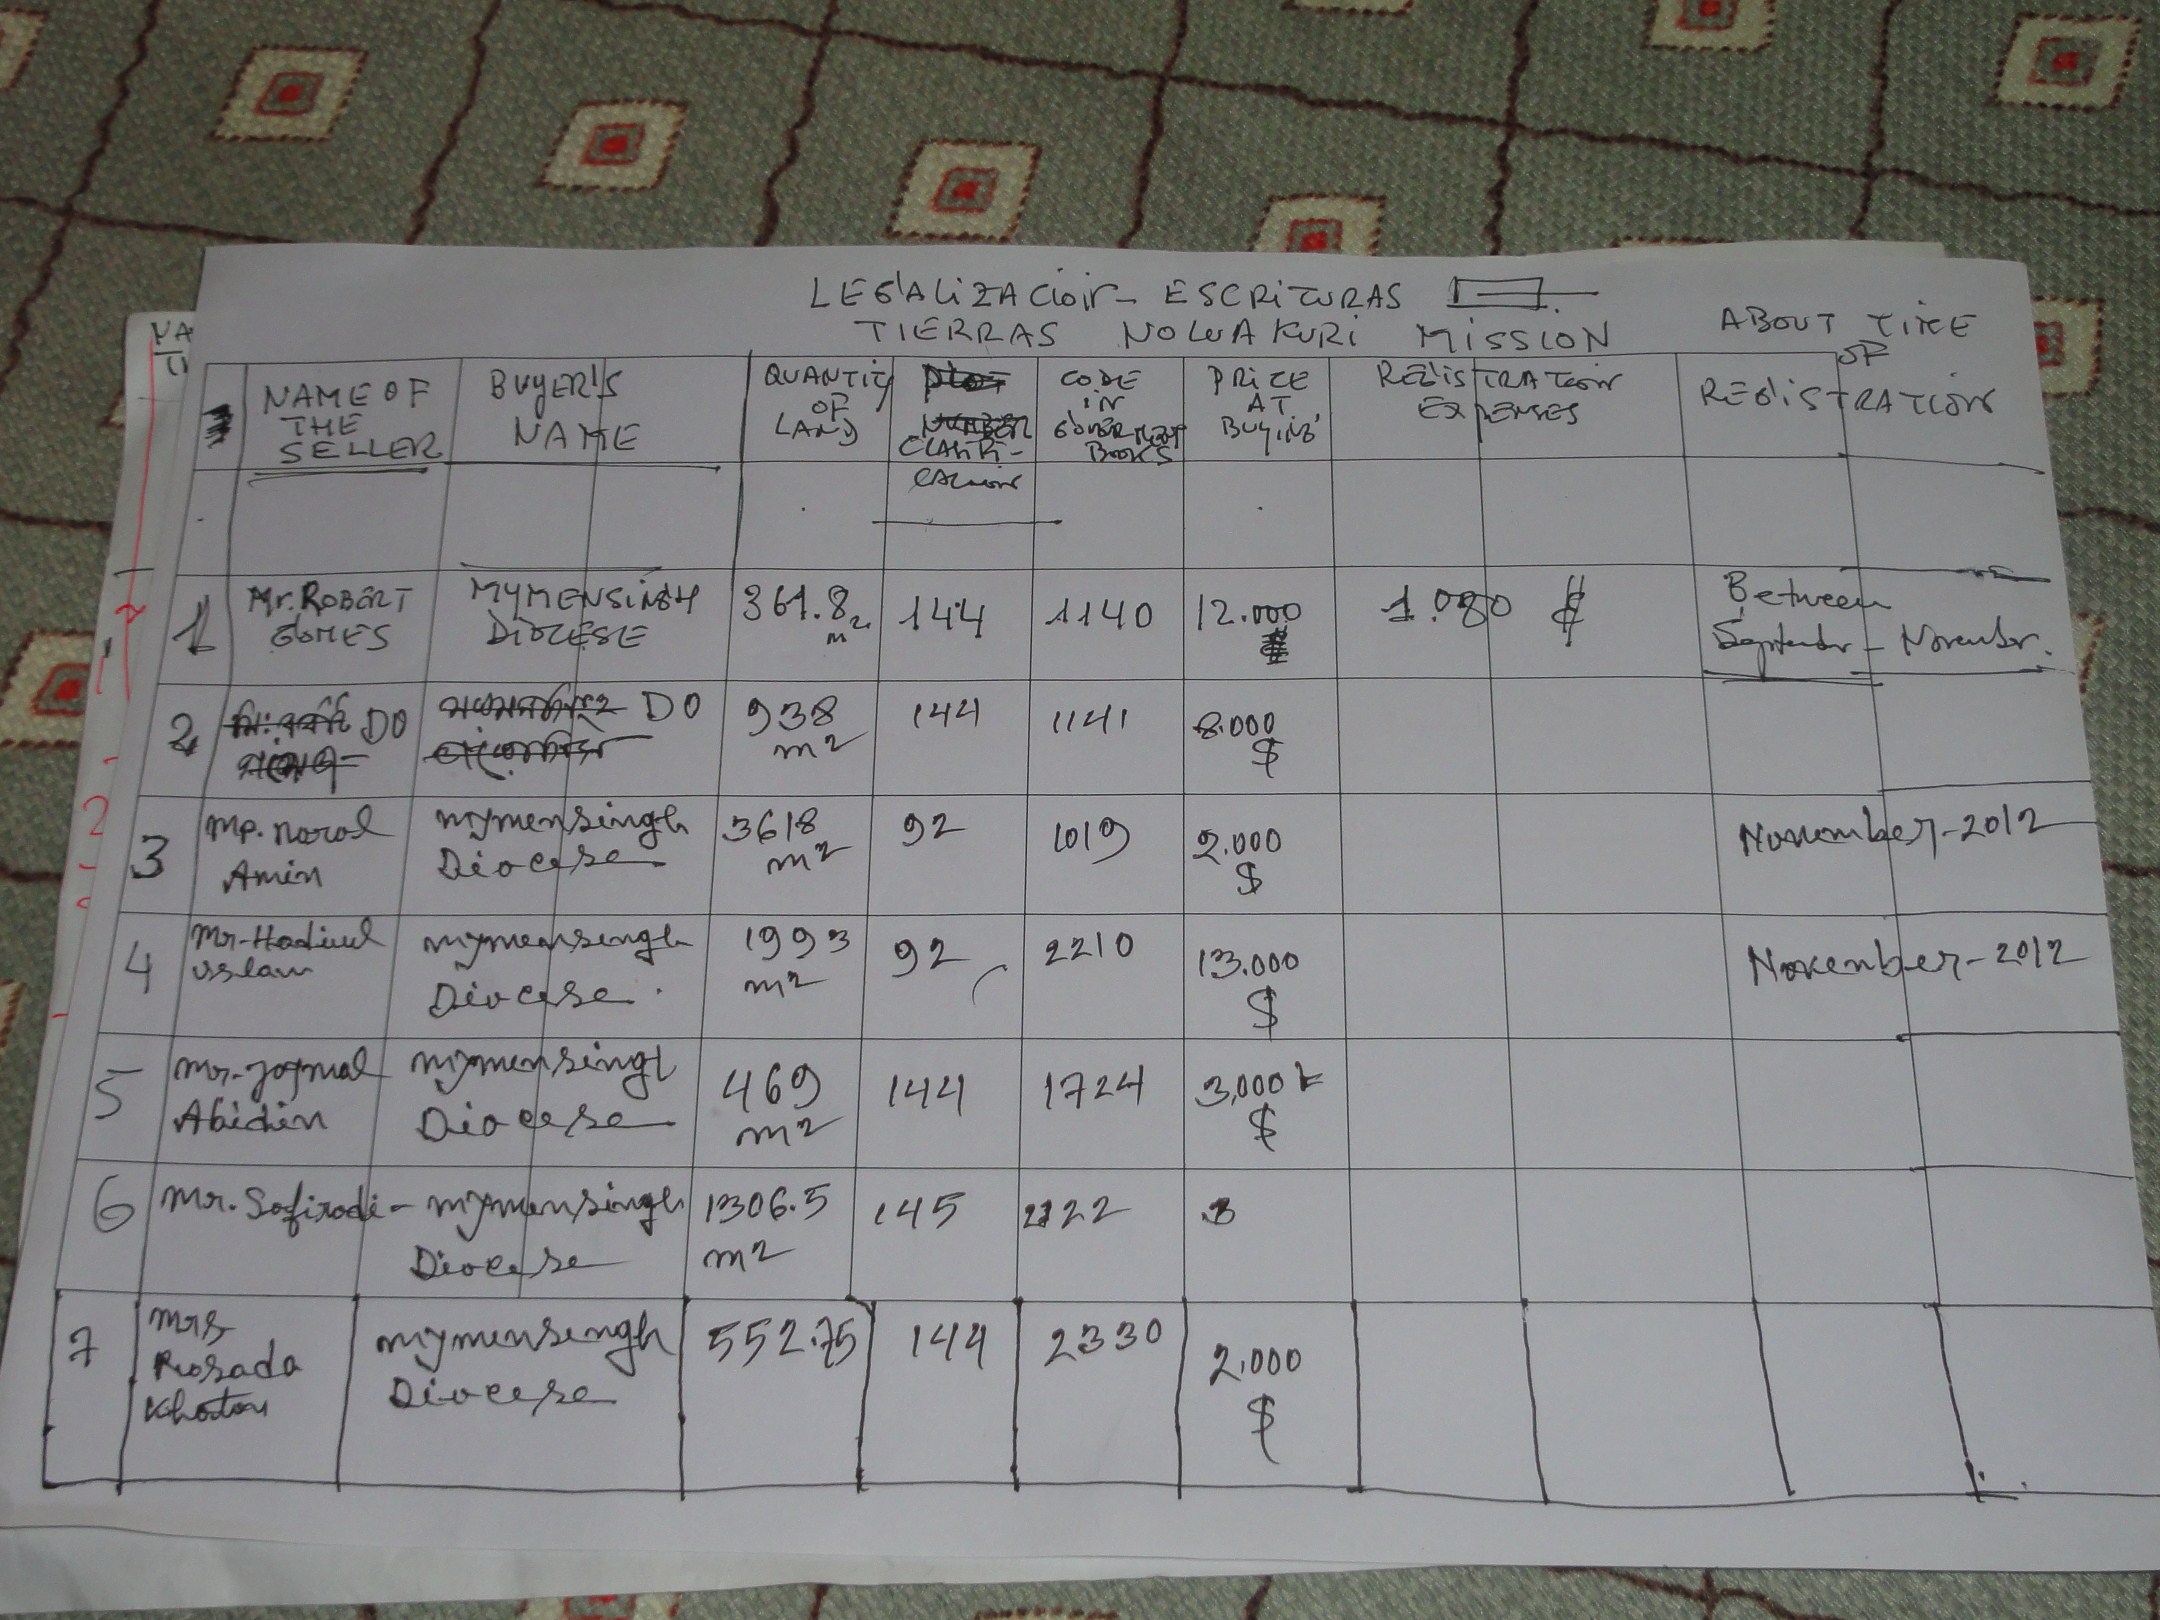 LEGALIZACION - ESCRITURAS
TIERRAS NOLUAKURI MISSION
ABOUT TIME
OF
REGISTRATION
NAME OF
THE
SELLER
BUYER'S
NAME
QUANTITY
OF
LAND
CODE
IN
GOVERNMENT
BOOKS
PRICE
AT
BUYING
REGISTRATION
EXPENSES
1 Mr. ROBERT
GOMES
MYMENSINGH
DIOCESE
361.8
m2
144 1140 12.000
$
1.080 $
Between
September - November.
2 DO DO 938
m2
144 1141 8.000
$
3 Mp. Norol
Amin
mymensingh
Diocese
3618
m2
92 1019 2.000
$
November-2012
4 Mr-Hadiul
Islam
mymensingh
Diocese
1993
m2
92 2210 13.000
$
November-2012
5 Mr-Joynal
Abidin
mymensingh
Diocese
469
m2
144 1724 3,000
$
6 Mr. Sofirodi - mymensingh
Diocese
1306.5
m2
145
7 Mrs
Rosada
Khaton
mymensingh
Diocese
552.75 144 2330 2.000
$